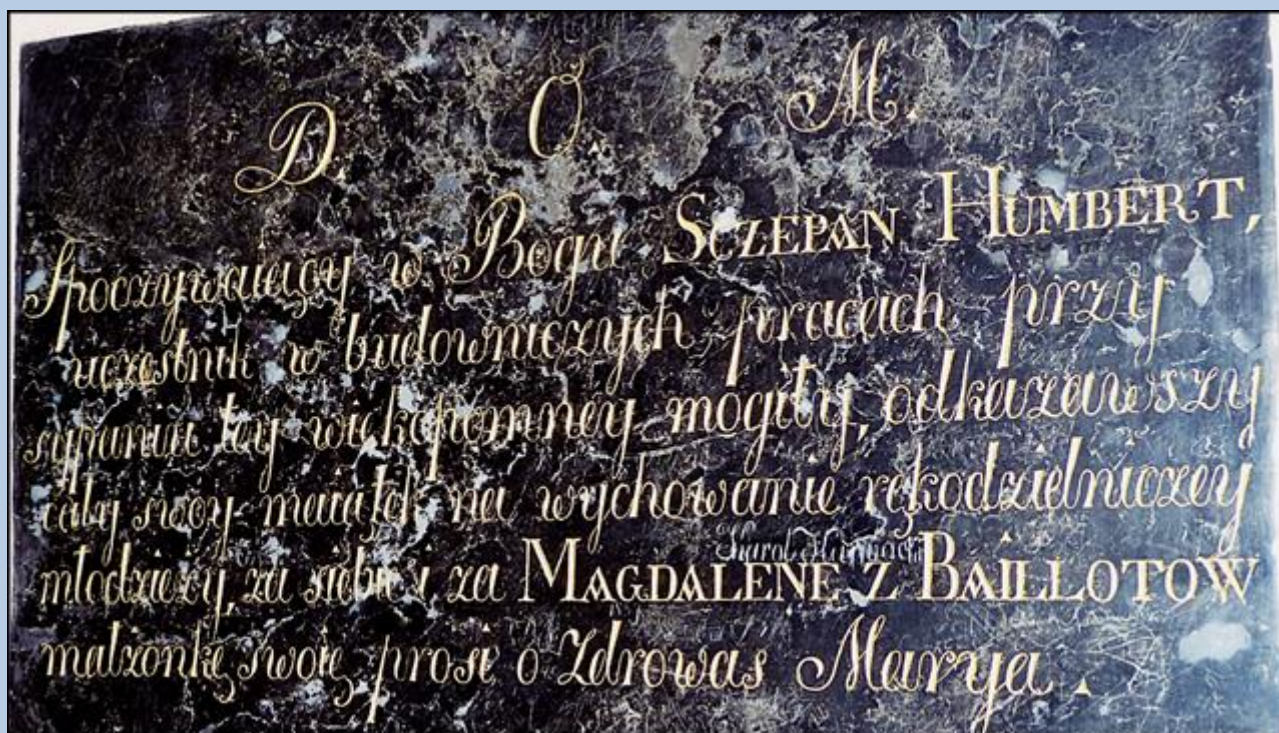 D. O. M.
Spoczywaiący w Bogu SCZEPAN HUMBERT,
uczestnik w budowniczych pracach przy
sypaniu tey wiekopomney mogiły, odkazawszy
cały swoy maiątek na wychowanie rękodzielniczey
młodzieży, za siebie i za MAGDALENE Z BAILLOTOW
małżonkę swoię prosi o Zdrowas Marya.